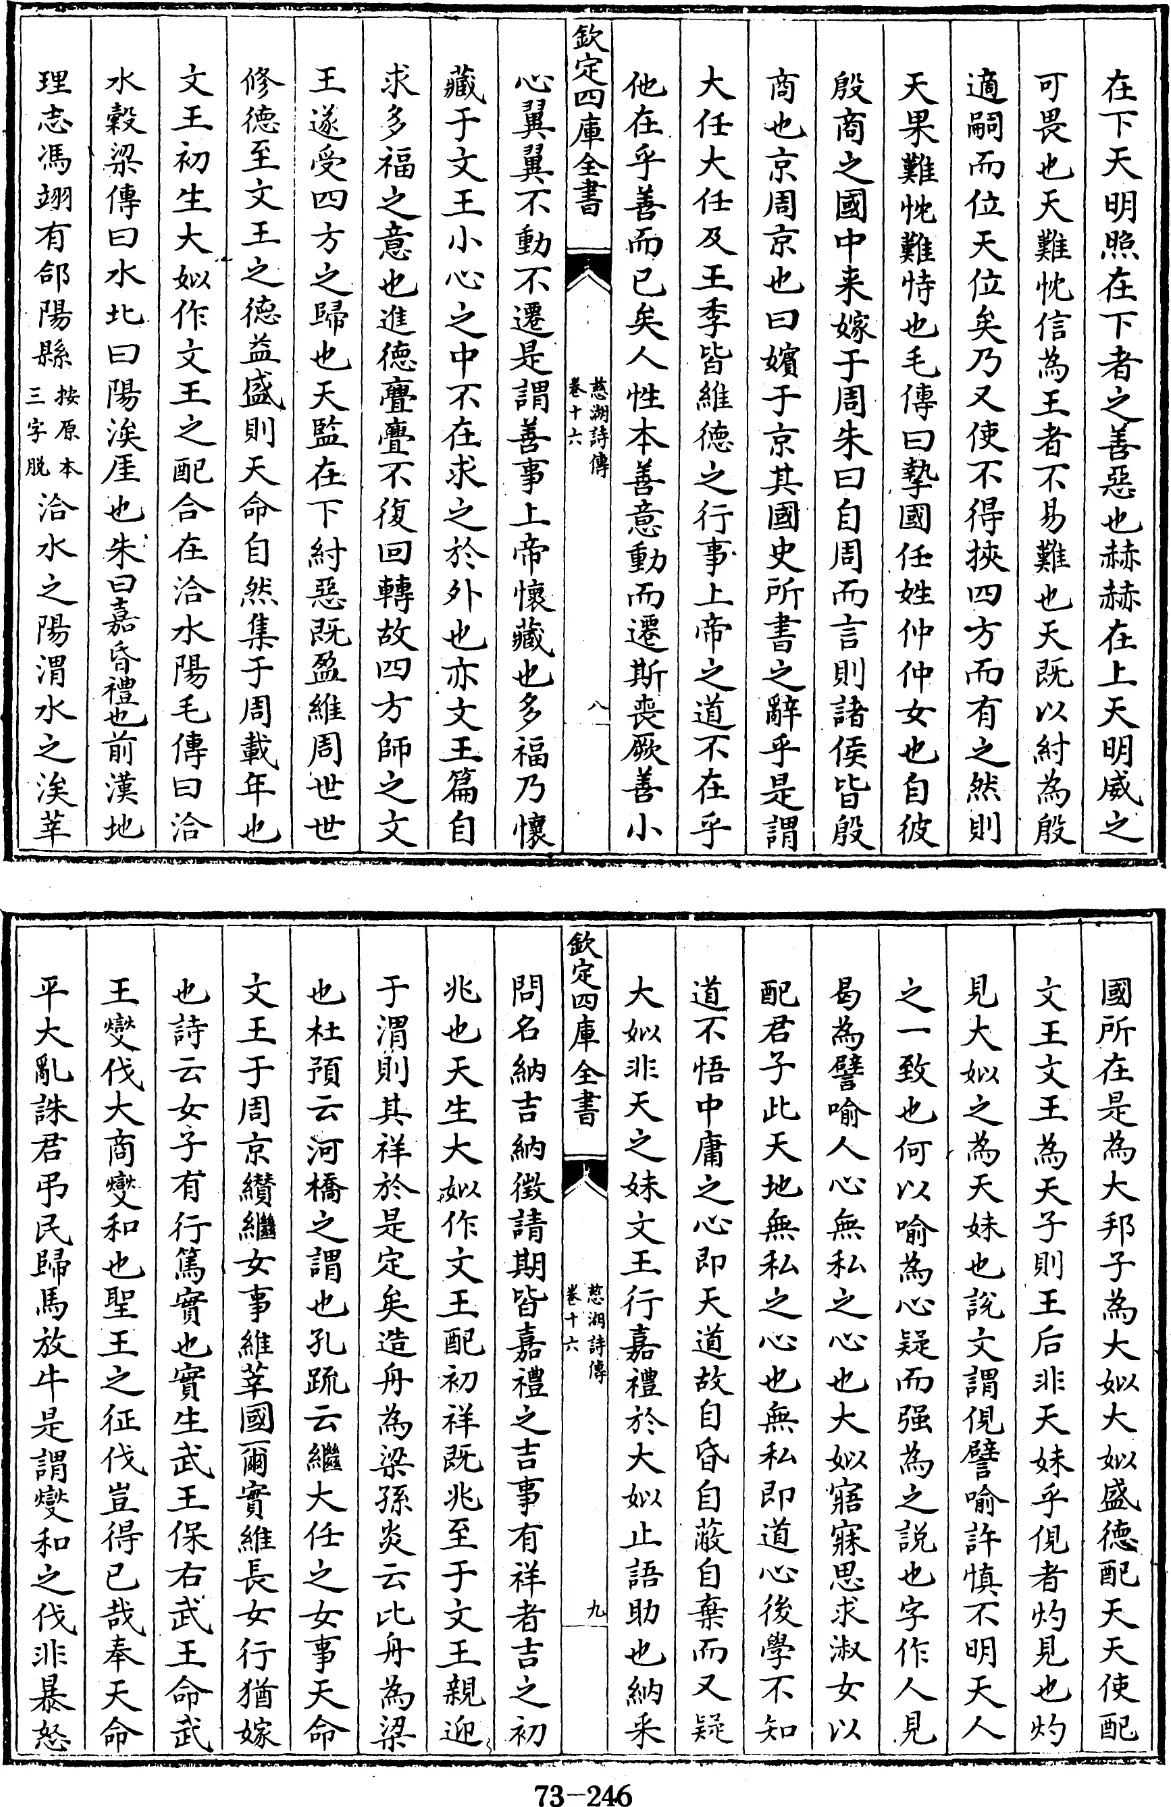 在下天明照在下者之善惡也赫赫在上天明威之
可畏也天難忱信為王者不易難也天既以紂為殷
適嗣而位天位矣乃又使不得挾四方而有之然則
天果難忱難恃也毛傳曰摯國任姓仲仲女也自彼
殷商之國中来嫁于周朱曰自周而言則諸侯皆殷
商也京周京也曰嬪于京其國史所書之辭乎是謂
大任大任及王季皆維德之行事上帝之道不在乎
他在乎善而已矣人性本善意動而遷斯喪厥善小
欽定四庫全書
慈湖詩傳
卷十六
八
心翼翼不動不遷是謂善事上帝懷藏也多福乃懷
藏于文王小心之中不在求之於外也亦文王篇自
求多福之意也進德亹亹不復回轉故四方師之文
王遂受四方之歸也天監在下紂惡既盈維周世世
修德至文王之德益盛則天命自然集于周載年也
文王初生大姒作文王之配合在洽水陽毛傳曰洽
水穀梁傳曰水北曰陽涘厓也朱曰嘉昏禮也前漢地
理志馮翊有郃陽縣按原本三字脱洽水之陽渭水之涘莘
國所在是為大邦子為大姒大姒盛德配天天使配
文王文王為天子則王后非天妹乎俔者灼見也灼
見大姒之為天妹也說文謂俔譬喻許慎不明天人
之一致也何以喻為心疑而强為之說也字作人見
曷為譬喻人心無私之心也大姒寤寐思求淑女以
配君子此天地無私之心也無私即道心後學不知
道不悟中庸之心即天道故自昏自蔽自棄而又疑
大姒非天之妹文王行嘉禮於大姒止語助也納采
欽定四庫全書
慈湖詩傳
卷十六
九
問名納吉納徵請期皆嘉禮之吉事有祥者吉之初
兆也天生大姒作文王配初祥既兆至于文王親迎
于渭則其祥於是定矣造舟為梁孫炎云比舟為梁
也杜預云河橋之謂也孔疏云繼大任之女事天命
文王于周京纘繼女事維莘國爾實維長女行猶嫁
也詩云女子有行篤實也實生武王保右武王命武
王燮伐大商燮和也聖王之征伐豈得已哉奉天命
平大亂誅君弔民歸馬放牛是謂燮和之伐非暴怒
73-246